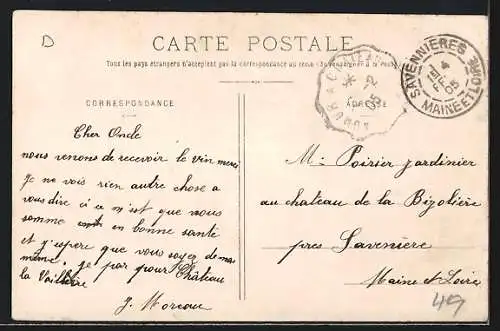 D
CARTE POSTALE
Tous les pays étrangers n'acceptent pas la correspondance au recto (se renseigner à la poste)
CORRESPONDANCE
ADRESSE
SAVENNIERES
4
FEV
05
MAINE ET LOIRE
Cher Oncle
nous venons de recevoir le vin merci
je ne vois rien autre chose a
vous dire si ce n'est que nous
somme en bonne santé
et j'espere que vous soyez de
même. je par pour Château
la Vallière
J. Moreau
M: Poirier jardinier
au chateau de la Bizolière
près Savenière
Maine et Loire
49